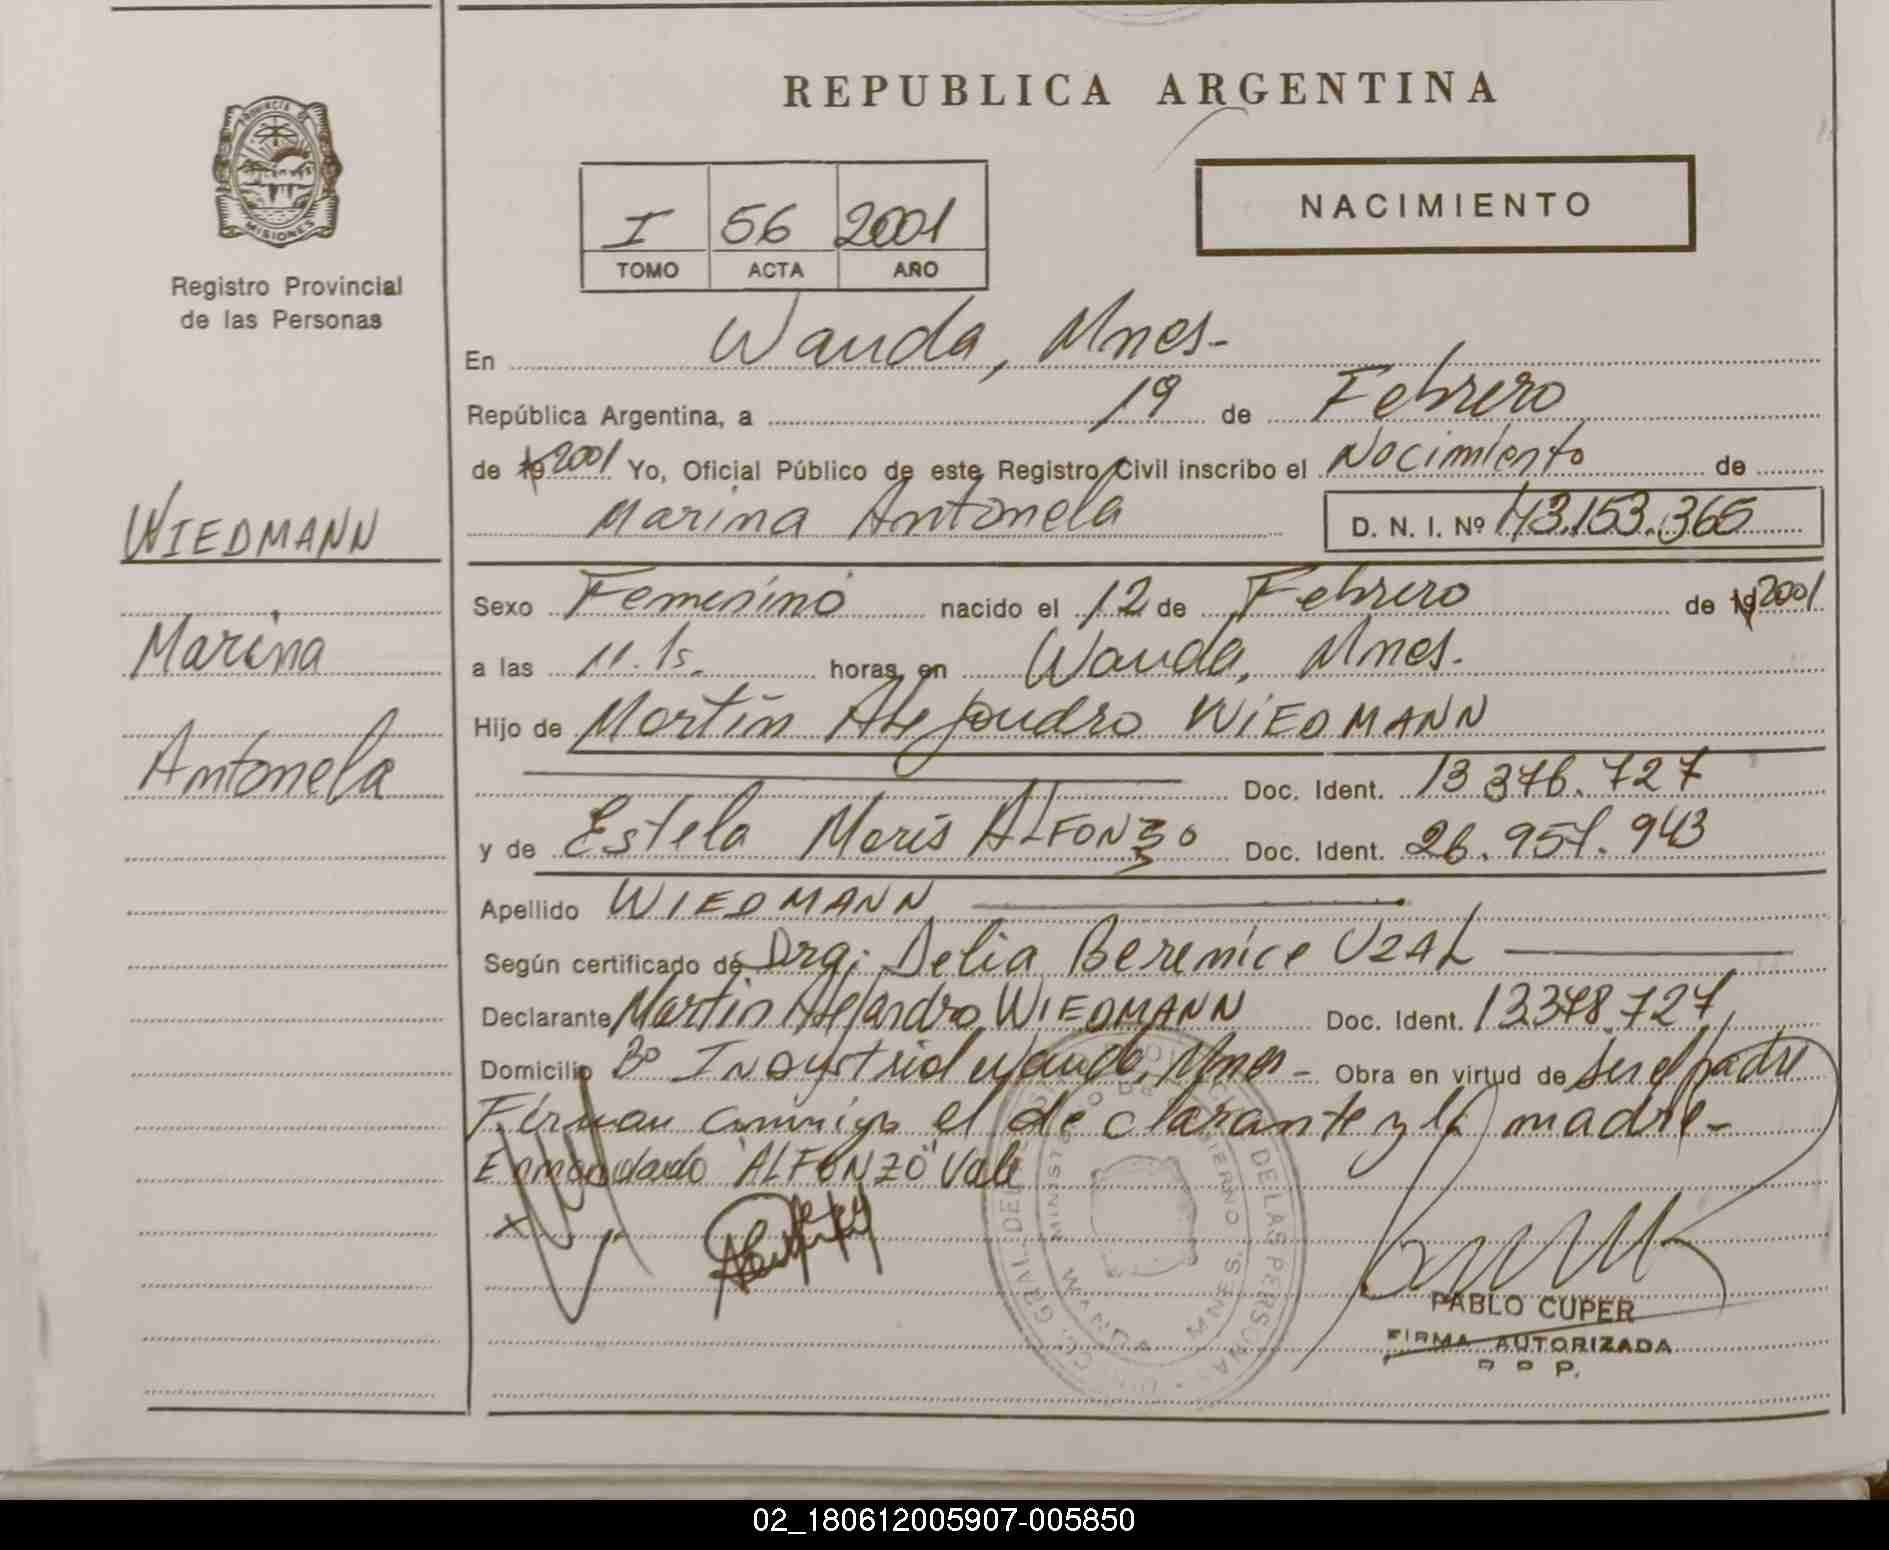 REPUBLICA ARGENTINA
PROVINCIA DE
MISIONES
Registro Provincial
de las Personas
NACIMIENTO
I 56 2001
TOMO ACTA AÑO
En Wanda, Mnes-
República Argentina, a 19 de Febrero
de 19 2001 Yo, Oficial Público de este Registro Civil inscribo el Nacimiento de
Marina Antonela D. N. I. Nº 43.153.365
WIEDMANN
Marina
Antonela
Sexo Femenino nacido el 12 de Febrero de 19 2001
a las 11.15. horas, en Wanda, Mnes.
Hijo de Martín Alejandro WIEDMANN
Doc. Ident. 13 376.727
y de Estela Maris ALFONZO Doc. Ident. 26.951.943
Apellido WIEDMANN
Según certificado de Dra; Delia Berenice UZAL
Declarante Martin Alejandro WIEDMANN Doc. Ident. 13378.727
Domicilio Bº Industrial Wanda, Mnes - Obra en virtud de ser el padre
Firman conmigo el declarante y la madre-
Enmendado "ALFONZO" Vale
DE LAS PERSONAS
WANDA MNES.
PABLO CUPER
FIRMA AUTORIZADA
R P P.
02_180612005907-005850